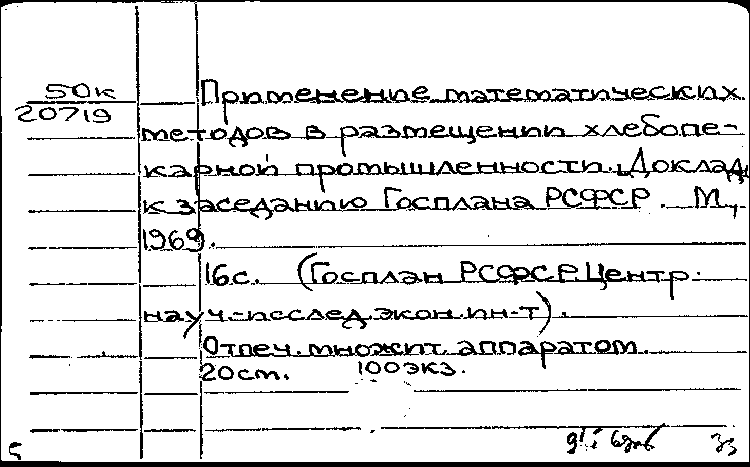 50к
20719
Применение математических
методов в размещении хлебопе-
карной промышленности. Доклад
к заседанию Госплана РСФСР. М.,
1969.
16с. (Госплан РСФСР. Центр.
науч.-исслед. экон. ин-т).
Отпеч. множит. аппаратом.
20см. 100экз.